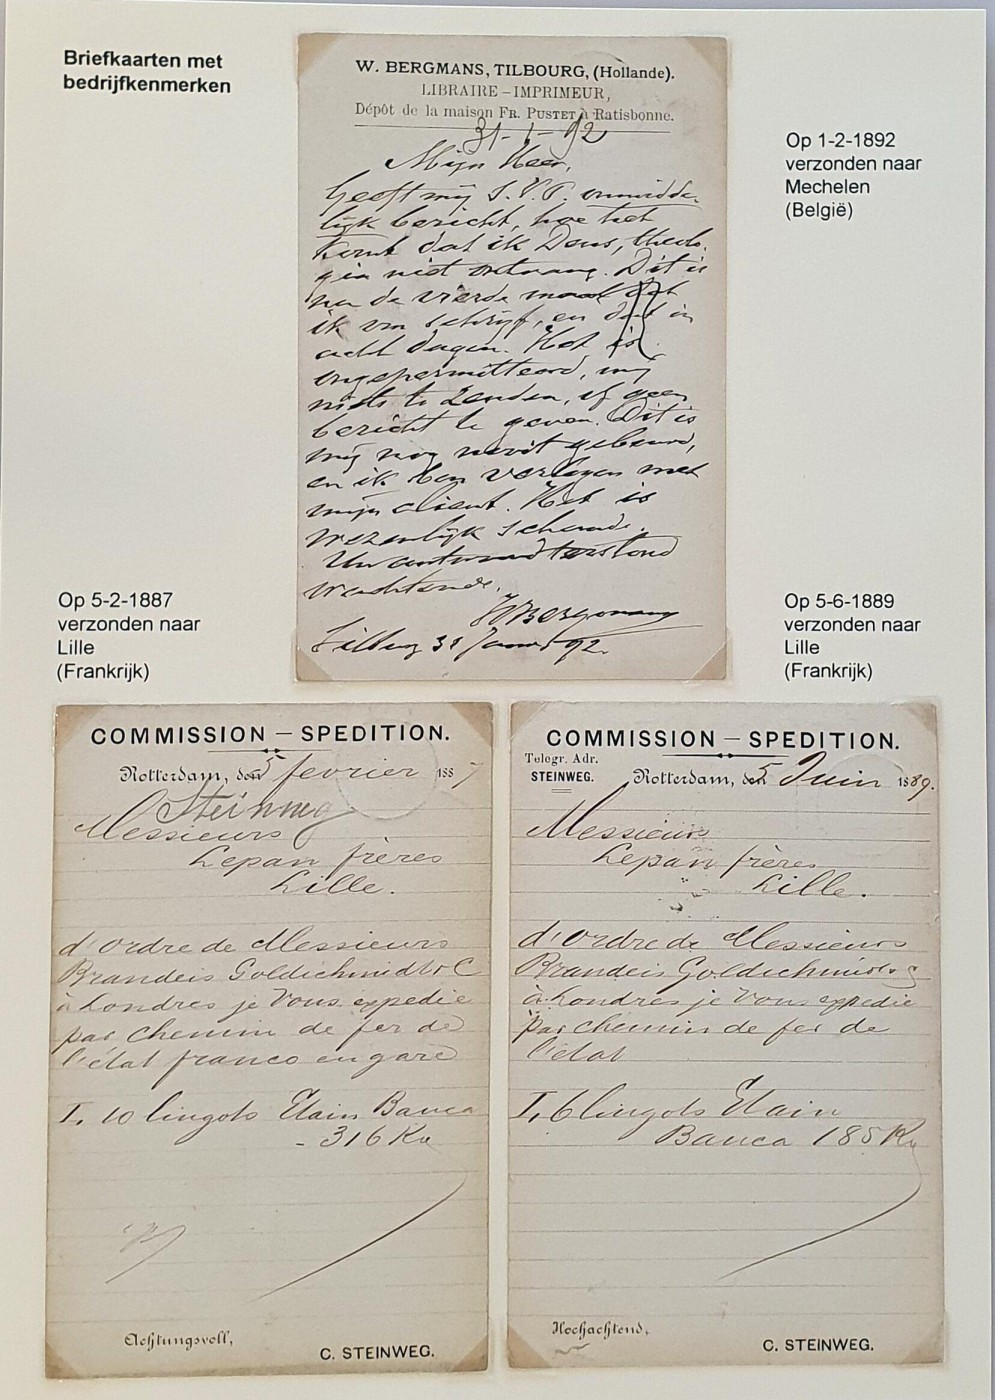 Briefkaarten met
bedrijfkenmerken
W. BERGMANS, TILBOURG, (Hollande).
LIBRAIRE – IMPRIMEUR,
Dépôt de la maison FR. PUSTET à Ratisbonne.
31-1-92
Mijn Heer,
Geeft mij S.V.P. onmidde-
lijk bericht, hoe het
komt dat ik Dens, theolo-
gia niet ontvang. Dit is
nu de vierde maal dat
ik om schrijf, en dat in
acht dagen. Het is
ongepermitteerd, mij
niets te zenden, of geen
bericht te geven. Dit is
mij nog nooit gebeurd,
en ik ben verlegen met
mijn client. Het is
wezenlijk schande.
Uw antwoord terstond
wachtende.
WBergmans
Tilburg 31 Januari 92.
Op 1-2-1892
verzonden naar
Mechelen
(België)
Op 5-2-1887
verzonden naar
Lille
(Frankrijk)
Op 5-6-1889
verzonden naar
Lille
(Frankrijk)
COMMISSION – SPEDITION.
Rotterdam, den 5 fevrier 1887
Steinweg
Messieurs
Lepan frères
Lille.
d'ordre de Messieurs
Brandeis Goldschmidt & C
à Londres je Vous expedie
par chemin de fer de
l'état franco en gare
T. 10 lingots Etain Banca
- 316 Ko
Achtungsvoll,
C. STEINWEG.
COMMISSION – SPEDITION.
Telegr. Adr.
STEINWEG.
Rotterdam, den 5 Juin 1889.
Messieurs
Lepan frères
Lille.
d'ordre de Messieurs
Brandeis Goldschmidt & C
à Londres je Vous expedie
par chemin de fer de
l'état
T. 6 lingots Etain
Banca 185 Ko
Hochachtend,
C. STEINWEG.